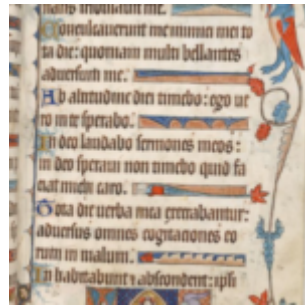 Conculcauerunt me inimici mei to
ta die: quoniam multi bellantes
aduersum me.
Ab altitudine diei timebo: ego ue
ro in te sperabo.
In deo laudabo sermones meos:
in deo speraui non timebo quid fa
ciat michi caro.
Tota die uerba mea execrabantur:
aduersus omnes cogitationes eo
rum in malum.
Inhabitabunt et abscondent: ipsi